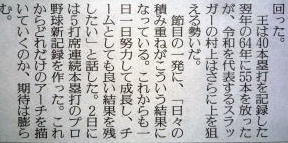 回った。
　王は40本塁打を記録した
翌年の64年に55本を放った
が、令和を代表するスラッ
ガーの村上はさらに上を狙
える勢いだ。
　節目の一発に、「日々の
積み重ねがこういう結果に
なっている。これからも一
日一日努力して成長し、チ
ームとしても良い結果を残
したい」と話した。２日に
は５打席連続本塁打のプロ
野球新記録を作った。これ
からどれだけのアーチを描
いていくのか、期待は膨ら
む。